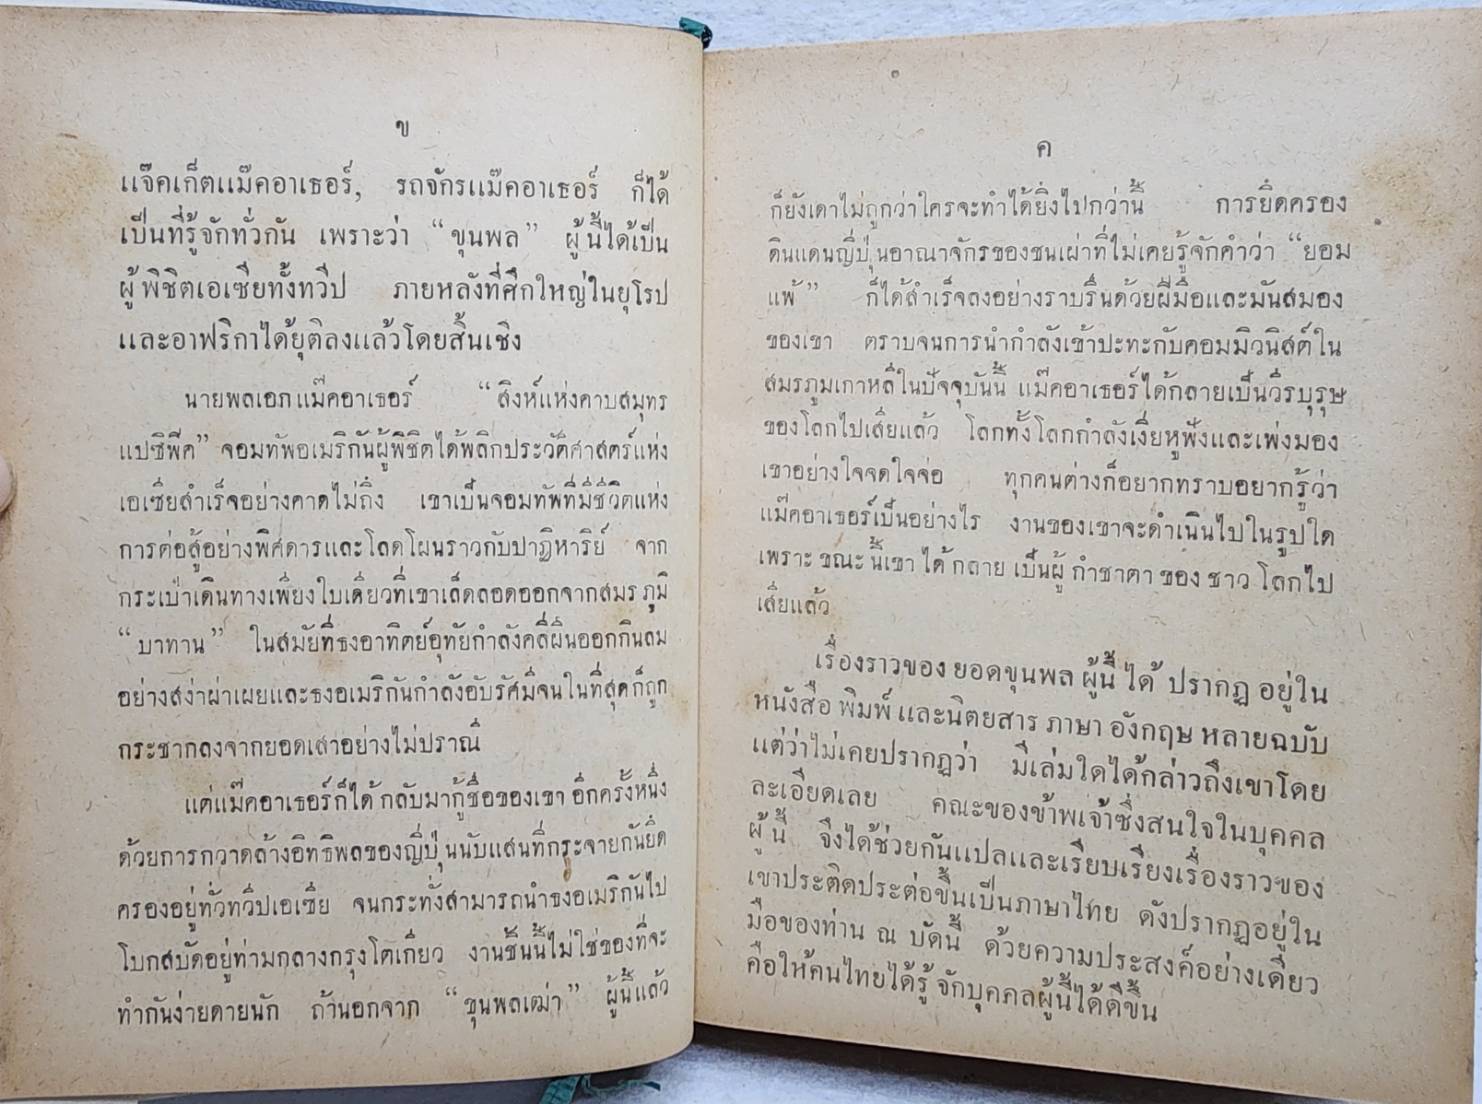 ข
แจ๊คเก็ตแม๊คอาเธอร์, รถจักรแม๊คอาเธอร์ ก็ได้
เป็นที่รู้จักทั่วกัน เพราะว่า “ขุนพล” ผู้นี้ได้เป็น
ผู้พิชิตเอเซียทั้งทวีป ภายหลังที่ศึกใหญ่ในยุโรป
และอาฟริกาได้ยุติลงแล้วโดยสิ้นเชิง
นายพลเอกแม๊คอาเธอร์ “สิงห์แห่งคาบสมุทร
แปซิฟิค” จอมทัพอเมริกันผู้พิชิตได้พลิกประวัติศาสตร์แห่ง
เอเซียสำเร็จอย่างคาดไม่ถึง เขาเป็นจอมทัพที่มีชีวิตแห่ง
การต่อสู้อย่างพิศดารและโลดโผนราวกับปาฏิหาริย์ จาก
กระเป๋าเดินทางเพียงใบเดียวที่เขาเล็ดลอดออกจากสมรภูมิ
“บาทาน” ในสมัยที่ธงอาทิตย์อุทัยกำลังคลี่ผืนออกกินลม
อย่างสง่าผ่าเผยและธงอเมริกันกำลังอับรัศมีจนในที่สุดก็ถูก
กระชากลงจากยอดเสาอย่างไม่ปราณี
แต่แม๊คอาเธอร์ก็ได้กลับมากู้ชื่อของเขาอีกครั้งหนึ่ง
ด้วยการกวาดล้างอิทธิพลของญี่ปุ่นนับแสนที่กระจายกันยึด
ครองอยู่ทั่วทวีปเอเซีย จนกระทั่งสามารถนำธงอเมริกันไป
โบกสบัดอยู่ท่ามกลางกรุงโตเกียว งานชิ้นนี้ไม่ใช่ของที่จะ
ทำกันง่ายดายนัก ถ้านอกจาก “ขุนพลเฒ่า” ผู้นี้แล้ว
ค
ก็ยังเดาไม่ถูกว่าใครจะทำได้ยิ่งไปกว่านี้ การยึดครอง
ดินแดนญี่ปุ่นอาณาจักรของชนเผ่าที่ไม่เคยรู้จักคำว่า “ยอม
แพ้” ก็ได้สำเร็จลงอย่างราบรื่นด้วยฝีมือและมันสมอง
ของเขา ตราบจนการนำกำลังเข้าปะทะกับคอมมิวนิสต์ใน
สมรภูมเกาหลีในปัจจุบันนี้ แม๊คอาเธอร์ได้กลายเป็นวีรบุรุษ
ของโลกไปเสียแล้ว โลกทั้งโลกกำลังเงี่ยหูฟังและเพ่งมอง
เขาอย่างใจจดใจจ่อ ทุกคนต่างก็อยากทราบอยากรู้ว่า
แม๊คอาเธอร์เป็นอย่างไร งานของเขาจะดำเนินไปในรูปใด
เพราะขณะนี้เขาได้กลายเป็นผู้กำชาตาของชาวโลกไป
เสียแล้ว
เรื่องราวของยอดขุนพลผู้นี้ได้ปรากฏอยู่ใน
หนังสือพิมพ์และนิตยสารภาษาอังกฤษหลายฉบับ
แต่ว่าไม่เคยปรากฏว่า มีเล่มใดได้กล่าวถึงเขาโดย
ละเอียดเลย คณะของข้าพเจ้าซึ่งสนใจในบุคคล
ผู้นี้ จึงได้ช่วยกันแปลและเรียบเรียงเรื่องราวของ
เขาประติดประต่อขึ้นเป็นภาษาไทย ดังปรากฏอยู่ใน
มือของท่าน ณ บัดนี้ ด้วยความประสงค์อย่างเดียว
คือให้คนไทยได้รู้จักบุคคลผู้นี้ได้ดีขึ้น